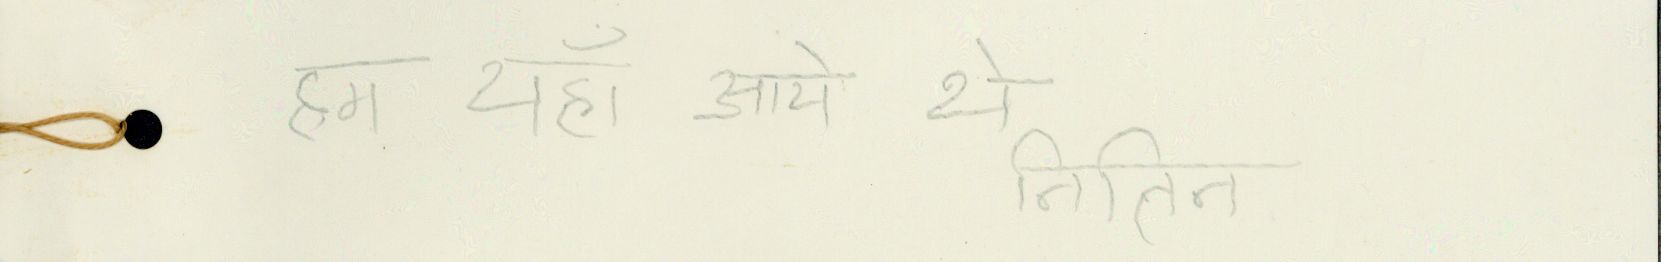 हम यहाँ आये थे
नितिन